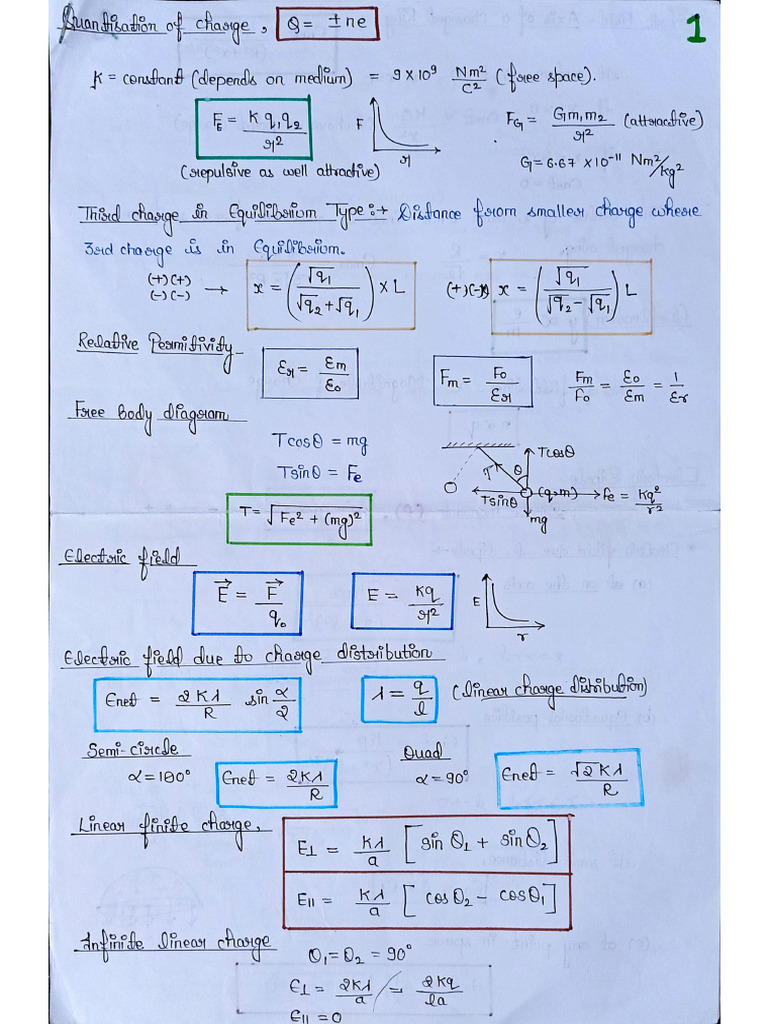 Quantisation of charge, Q = ±ne
1
K = constant (depends on medium) = 9×10⁹ Nm²/C² (free space).
F_E = K q₁q₂/r²
F
r
F_G = Gm₁m₂/r² (attractive)
(repulsive as well attractive)
G = 6.67 ×10⁻¹¹ Nm²/kg²
Third charge in Equilibrium Type:→ Distance from smaller charge where
3rd charge is in Equilibrium.
(+)(+)
(-)(-) → x = (√q₁/(√q₂+√q₁)) × L
(+)(-) x = (√q₁/(√q₂-√q₁)) L
Relative Permitivity
εr = εm/ε₀
Fm = F₀/εr
Fm/F₀ = ε₀/εm = 1/εr
Free body diagram
Tcosθ = mg
Tsinθ = Fe
T = √(Fe² + (mg)²)
Tcosθ
T
θ
Tsinθ
(q,m)
Fe = Kq²/r²
mg
Electric field
E⃗ = F⃗/q₀
E = Kq/r²
E
r
Electric field due to charge distribution
Enet = 2Kλ/R sin α/2
λ = q/l (linear charge distribution)
Semi-circle
α=180° Enet = 2Kλ/R
Quad
α=90° Enet = √2Kλ/R
Linear finite charge,
E⊥ = Kλ/a [sinθ₁ + sinθ₂]
E|| = Kλ/a [cosθ₂ - cosθ₁]
Infinite linear charge
θ₁=θ₂ = 90°
E⊥ = 2Kλ/a = 2Kq/la
E|| = 0